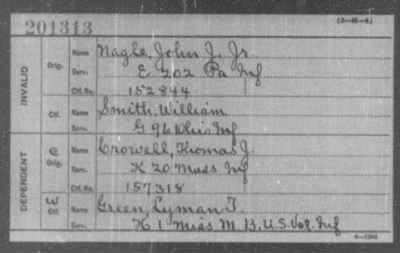 201313
(3-25-4)
INVALID
Orig.
Name Nagle, John J. Jr.
Serv. E 202 Pa Inf
Ctf. No. 152844
Ctf.
Name Smith, William
Serv. G 96 Ohio Inf
DEPENDENT
C
Orig.
Name Crowell, Thomas J.
Serv. K 20 Mass Inf
Ctf. No. 157318
W
Ctf.
Name Green, Lyman T.
Serv. H 1 Miss M. B. U.S. Vol. Inf